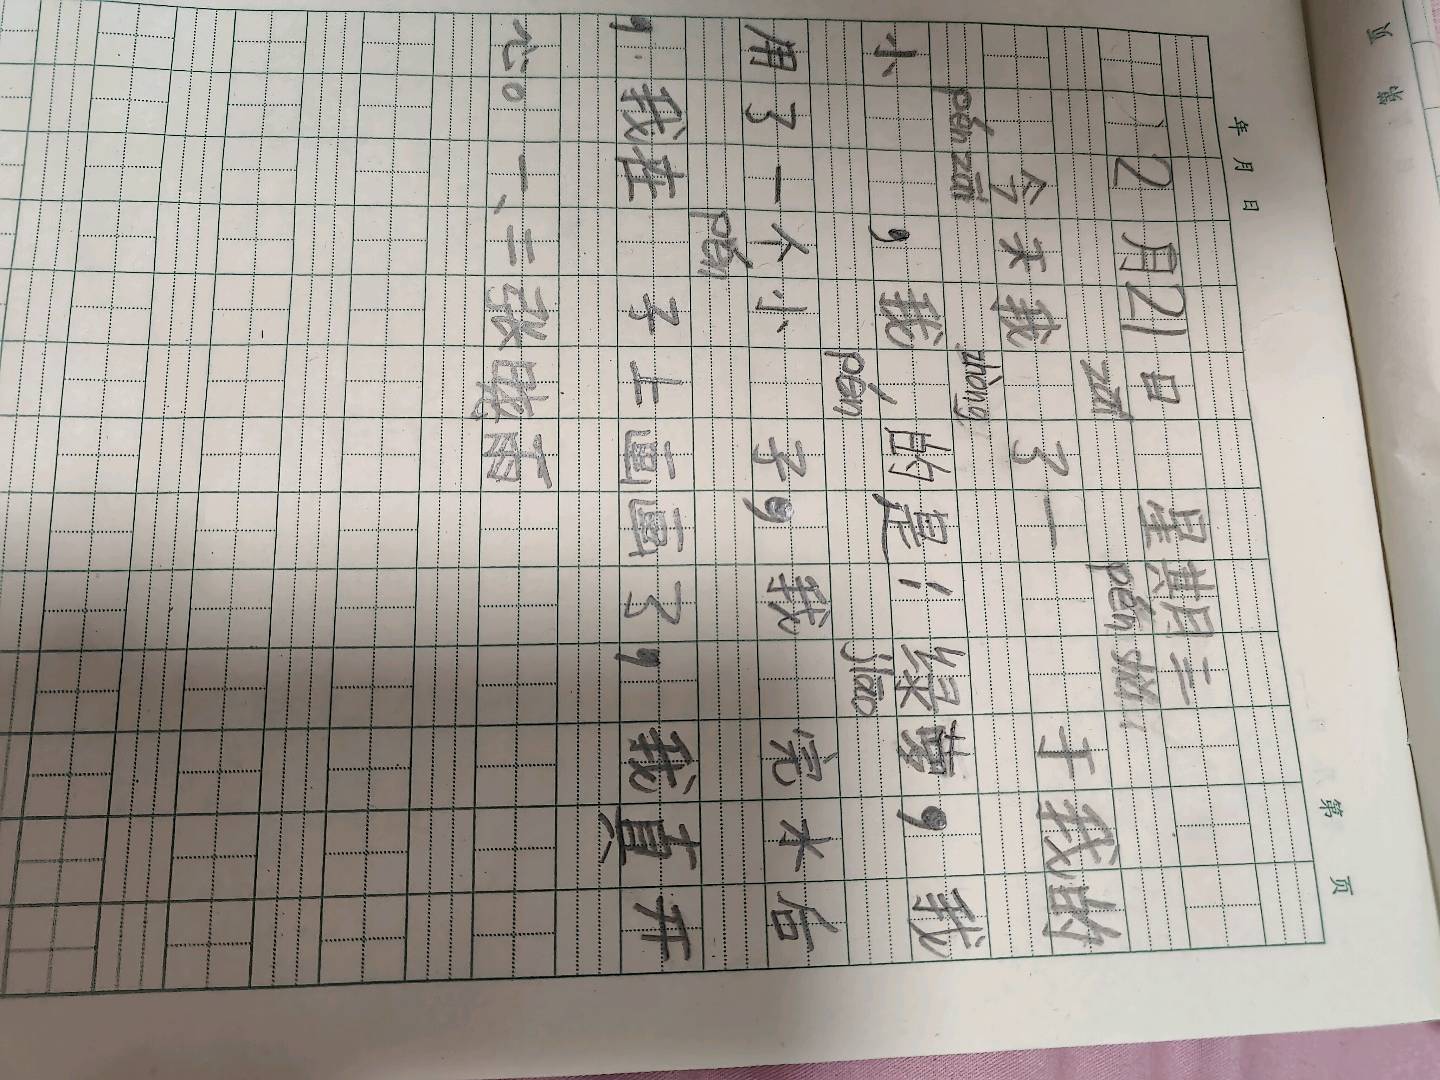 年 月 日 第 页
2月21日 星期三
zāi pén
今天我 了一 于我的
pén zāi zhòng
小 ,我 的是:绿萝,我
pén jiāo
用了一个小 子,我 完水后
pén
,我在 子上画画了,我真开
心。一、二张晓雨
第 页